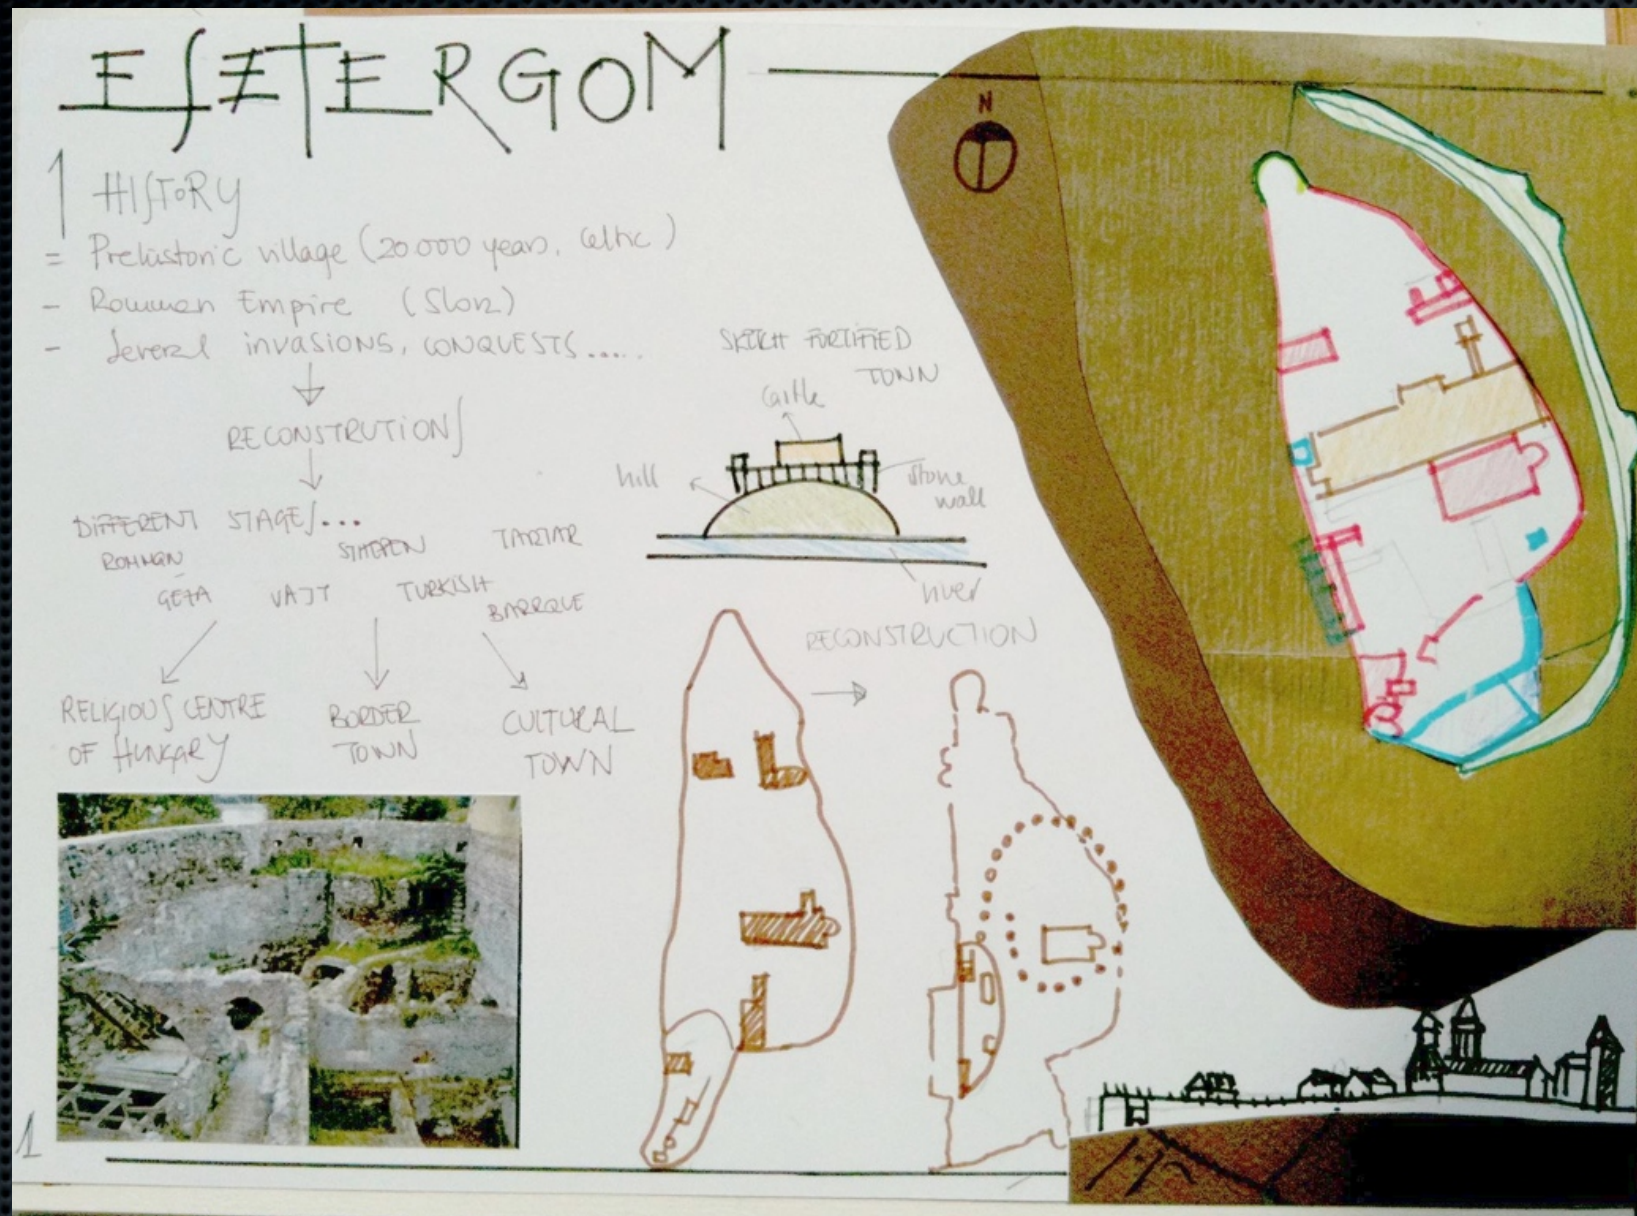 ESZTERGOM
1 HISTORY
= Prehistoric village (20.000 years, Celtic)
- Romman Empire
- Several invasions, CONQUESTS.....
RECONSTRUTIONS
DIFFERENT STAGES...
ROMMAN
STHEPEN
TARTAR
GEZA
TURKISH
BARRQUE
RELIGIOUS CENTRE
OF HUNGARY
BORDER
TOWN
CULTURAL
TOWN
SKETCH FORTIFIED
TOWN
Castle
hill
stone
wall
river
RECONSTRUCTION
N
1